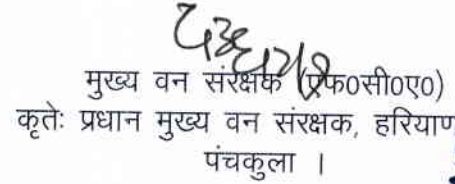 मुख्य वन संरक्षक (एफ0सी0ए0)
कृतेः प्रधान मुख्य वन संरक्षक, हरियाण
पंचकुला ।